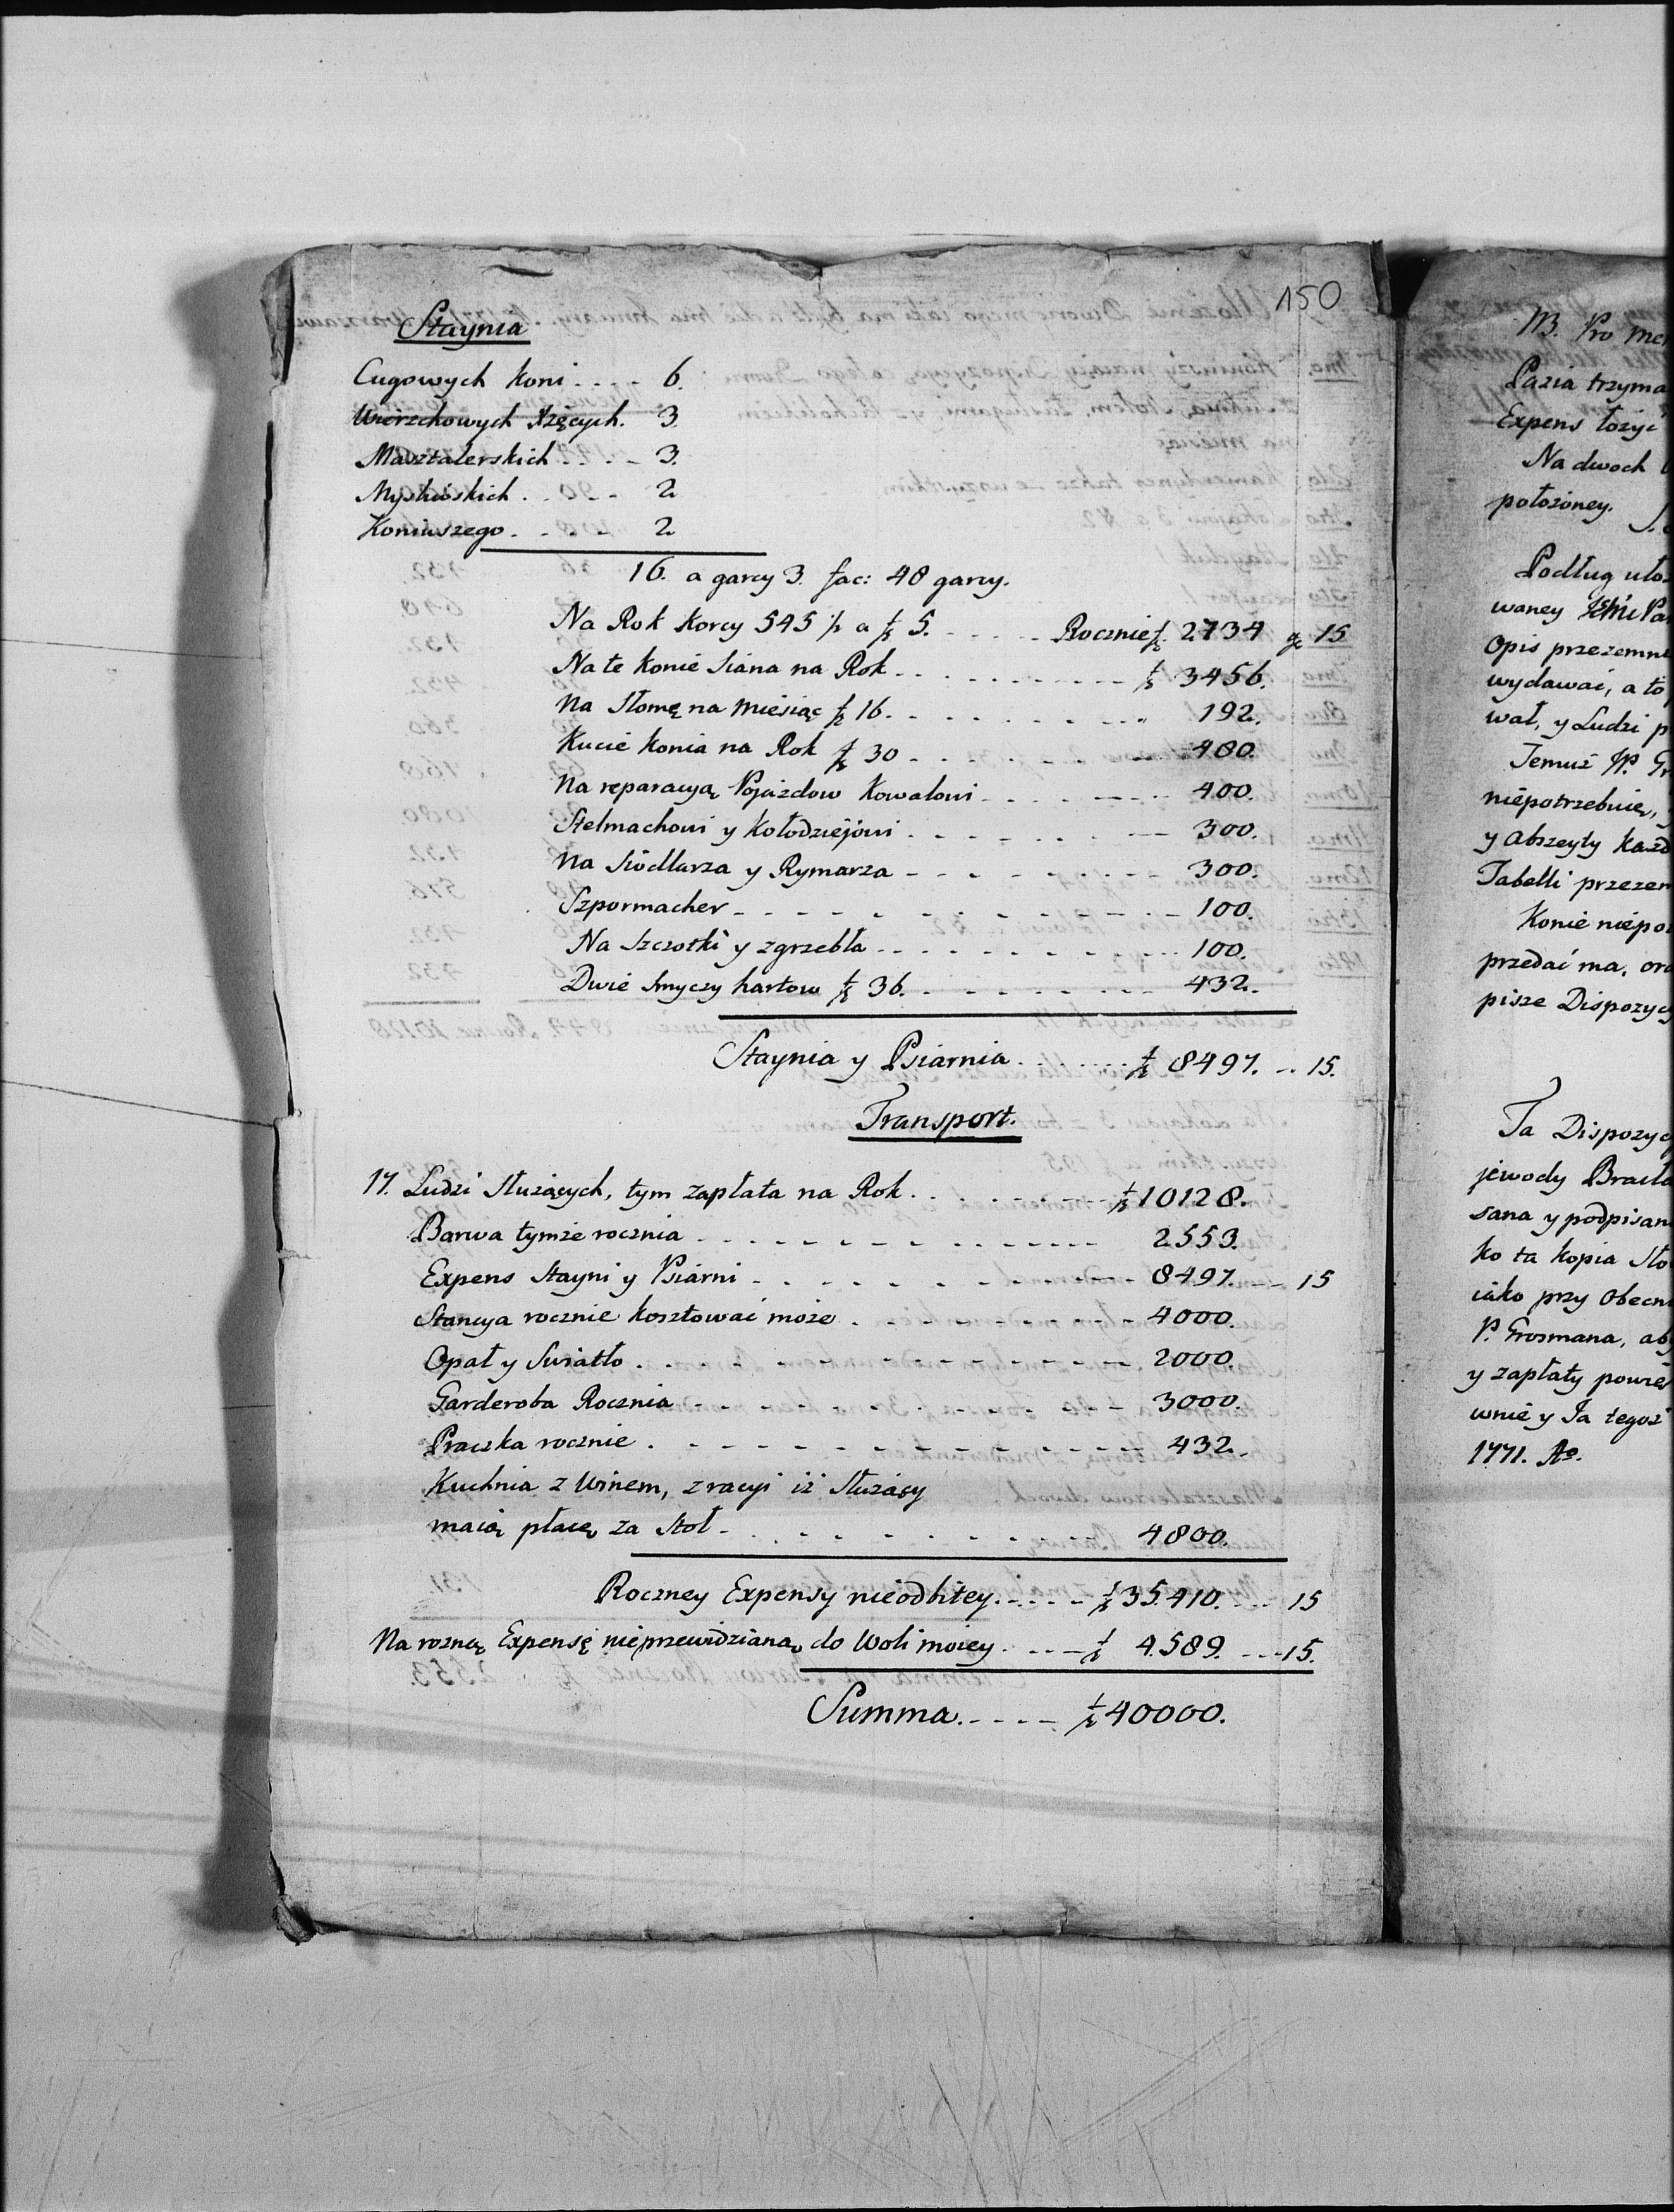 150
Staynia
Cugowych koni . . . - 6.
Wierzchowych Xżęcych. 3.
Masztalerskich . . . - 3.
Myśliwskich . . . - 2
Koniuszego . . . - 2
16. a garcy 3. fac: 48 garcy.
Na Rok Korcy 545 a 5. - - - Rocznie 2734 g 15
Na te konie Siana na Rok - - - 3456.
Na Słomę na Miesiąc 16. - - - 192.
Kucie konia na Rok 30 - - - 480.
Na reparacyą Pojazdow Kowalowi - - - 400.
Stelmachowi y Kołodziejowi - - - 300.
Na Siodlarza y Rymarza - - - 300.
Szpormacher - - - 100.
Na Szczotki y zgrzebła - - - 100.
Dwie Smyczy hartow 36. - - - 432.
Staynia y Psiarnia - - - 8497. - - 15.
Transport.
17. Ludzi Służących, tym zapłata na Rok - - - 10128.
Barwa tymże rocznia - - - 2553.
Expens Stayni y Psiarni - - - 8497. - - 15
Stancya rocznie kosztować może - - - 4000.
Opał y Swiatło - - - 2000.
Garderoba Rocznia - - - 3000.
Praczka rocznie - - - 432.
Kuchnia z Winem, z racyi iż Służący
maią płacę za Stoł - - - 4800.
Roczney Expensy nieodbitey - - - 35.410. - - 15
Na rozną Expensę nieprzewidzianą do Woli moiey - - - 4.589. - - 15.
Summa - - - 40000.
Pro
Pazia trzyma
Expens łożyć
Na dwoch
położoney.
Podług
waney
Opis przezemn
wydawać, a to
wał, y Ludzi
Temuż
niepotrzebnie,
y Abszeyty każd
Tabelli przezem
Konie
przedać ma,
pisze Dispozycy
Ta Dispozycy
jewody
sana y podpisan
ko ta kopia
iako przy Obecn
P. Grosmana,
y zapłaty
wnie y Ja tegoż
1771.